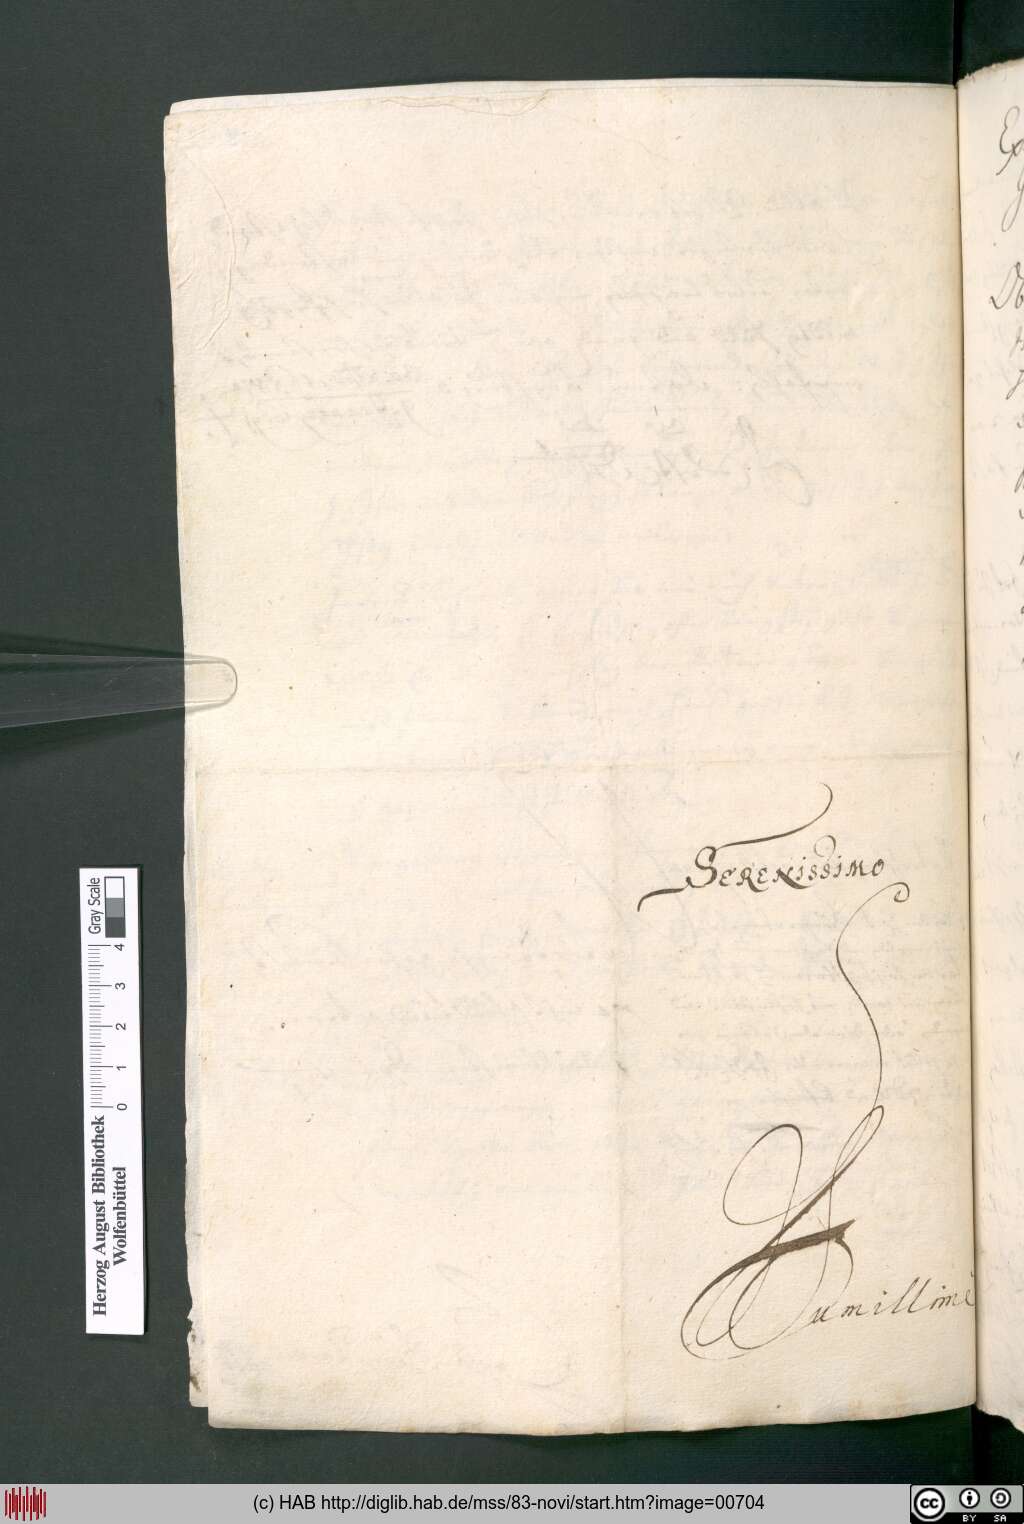 SERENISSIMO
Humillimè
Herzog August Bibliothek
Wolfenbüttel
0 1 2 3 4
Gray Scale
(c) HAB http://diglib.hab.de/mss/83-novi/start.htm?image=00704
CC BY SA